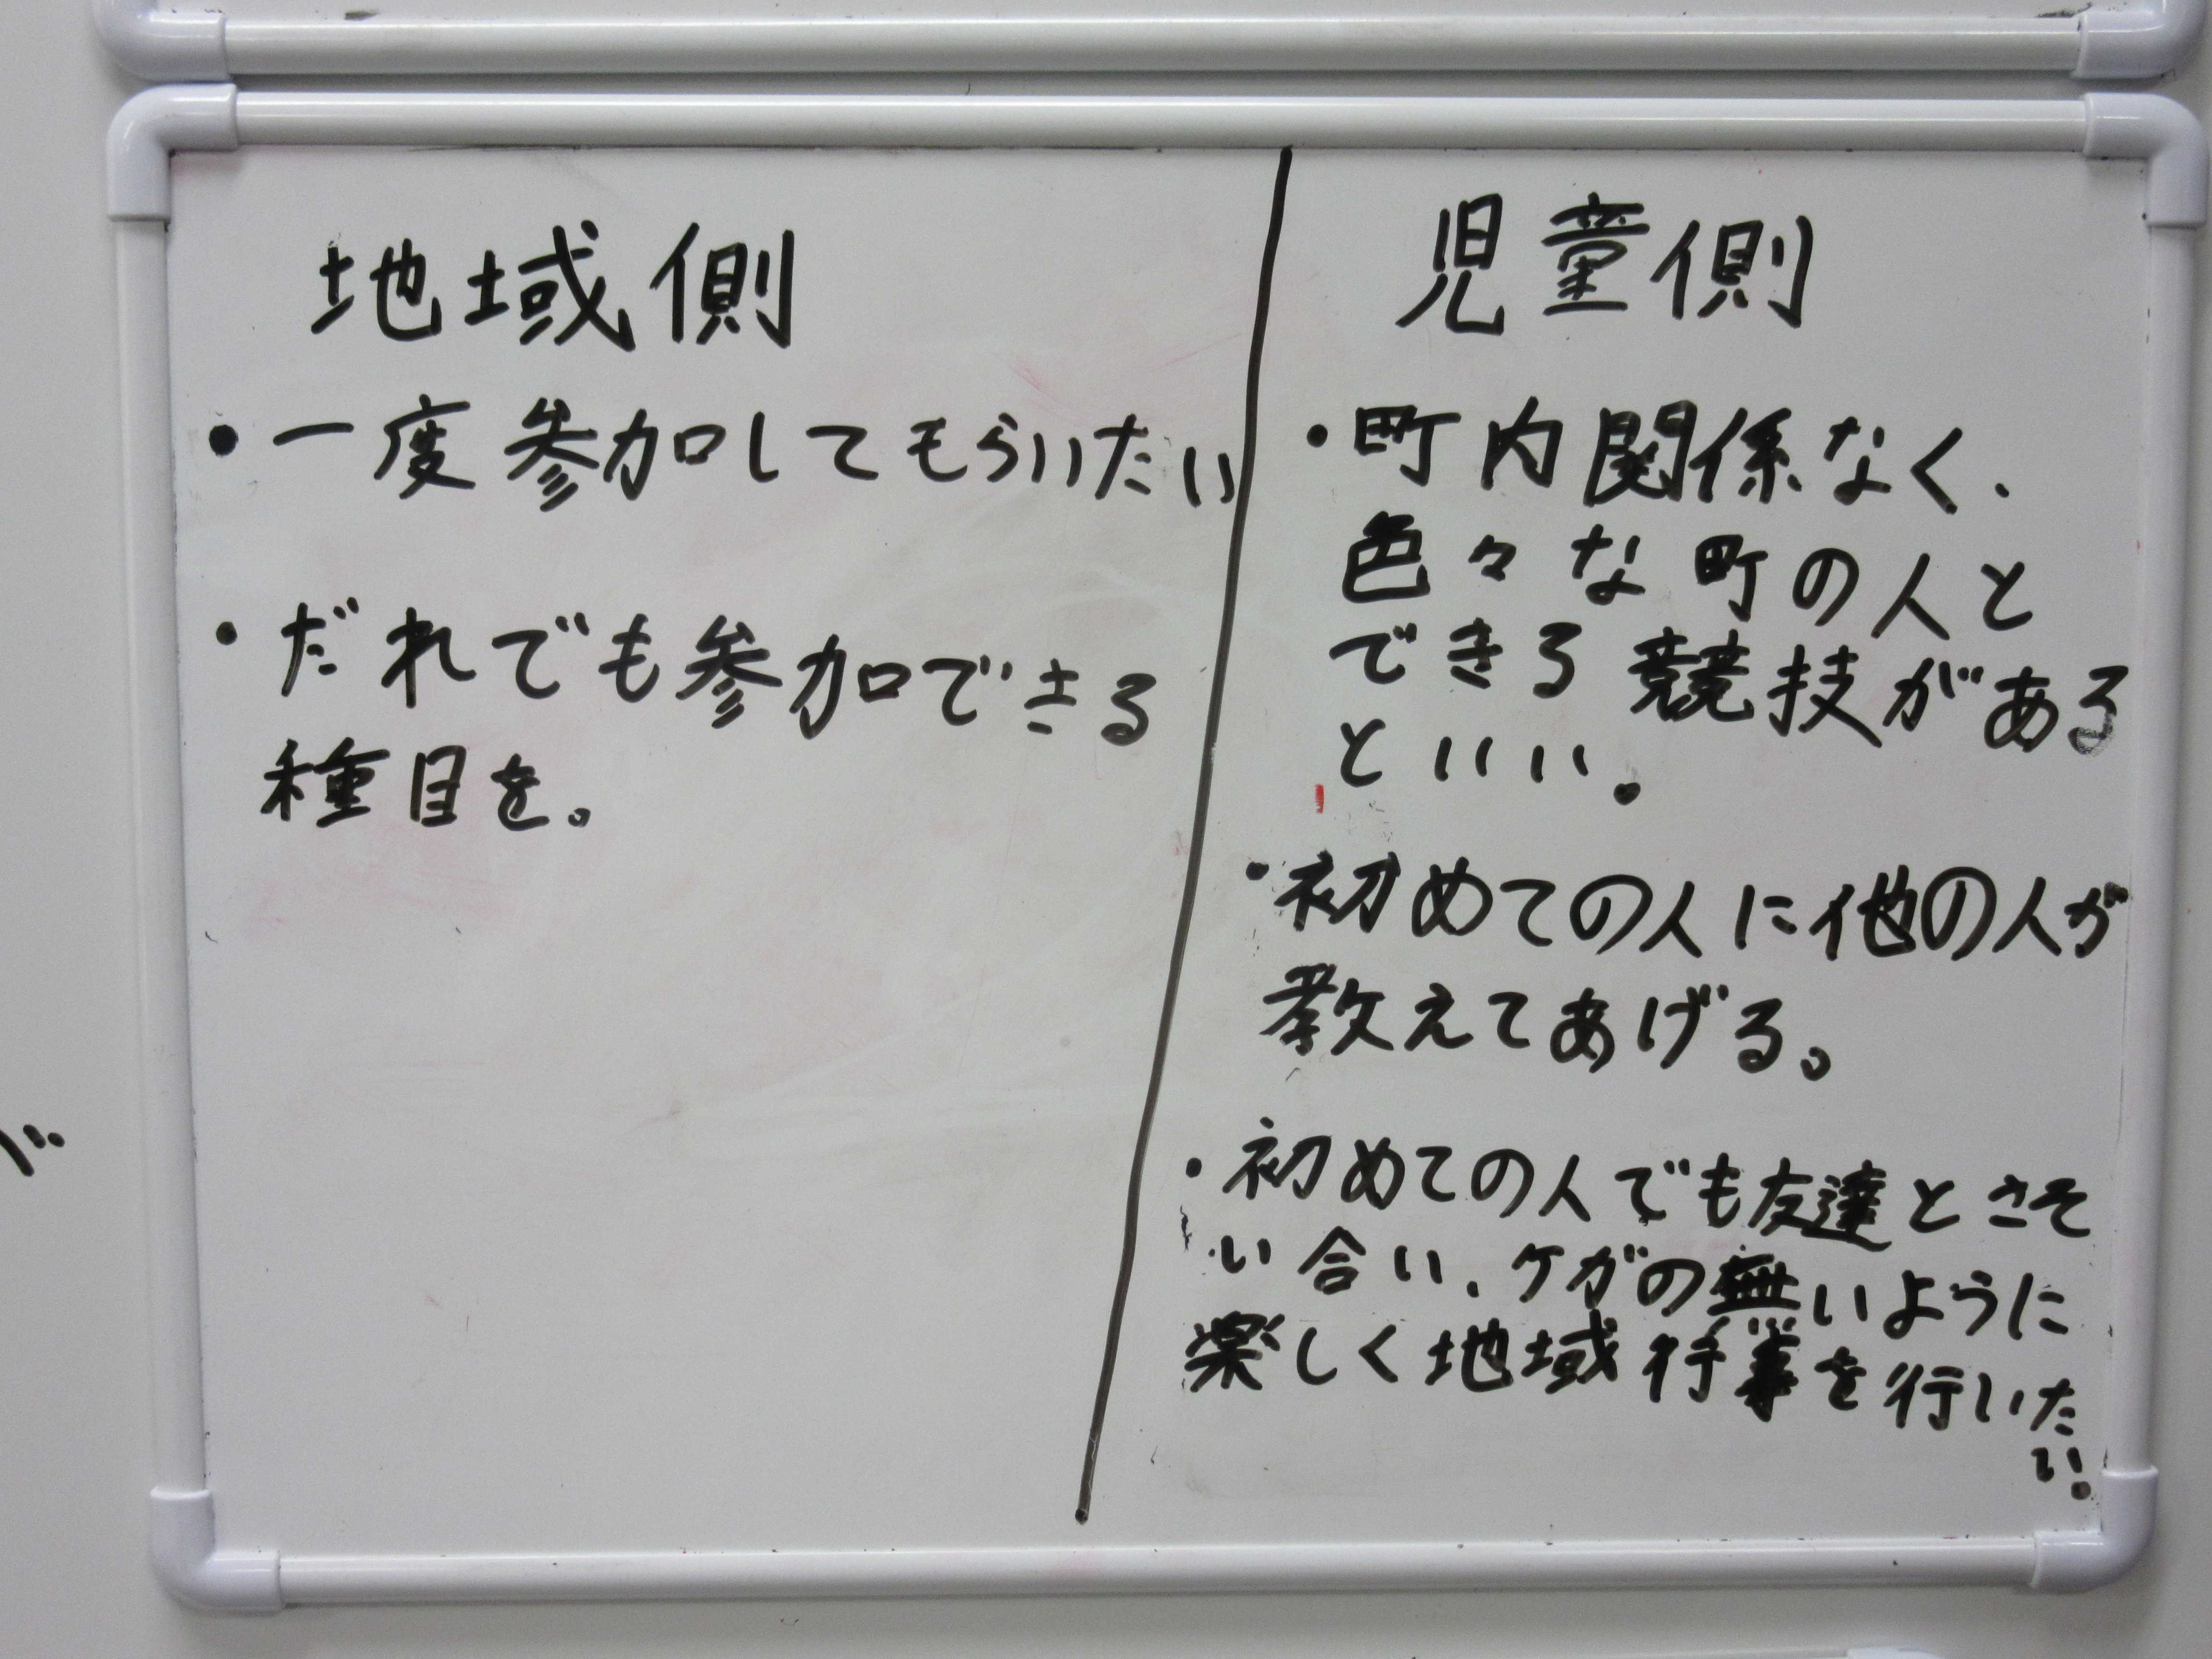 地域側
・一度参加してもらいたい
・だれでも参加できる
種目を。
児童側
・町内関係なく、
色々な町の人と
できる競技がある
といい。
・初めての人に他の人が
教えてあげる。
・初めての人でも友達とさそ
い合い、ケガの無いように
楽しく地域行事を行いた
い。